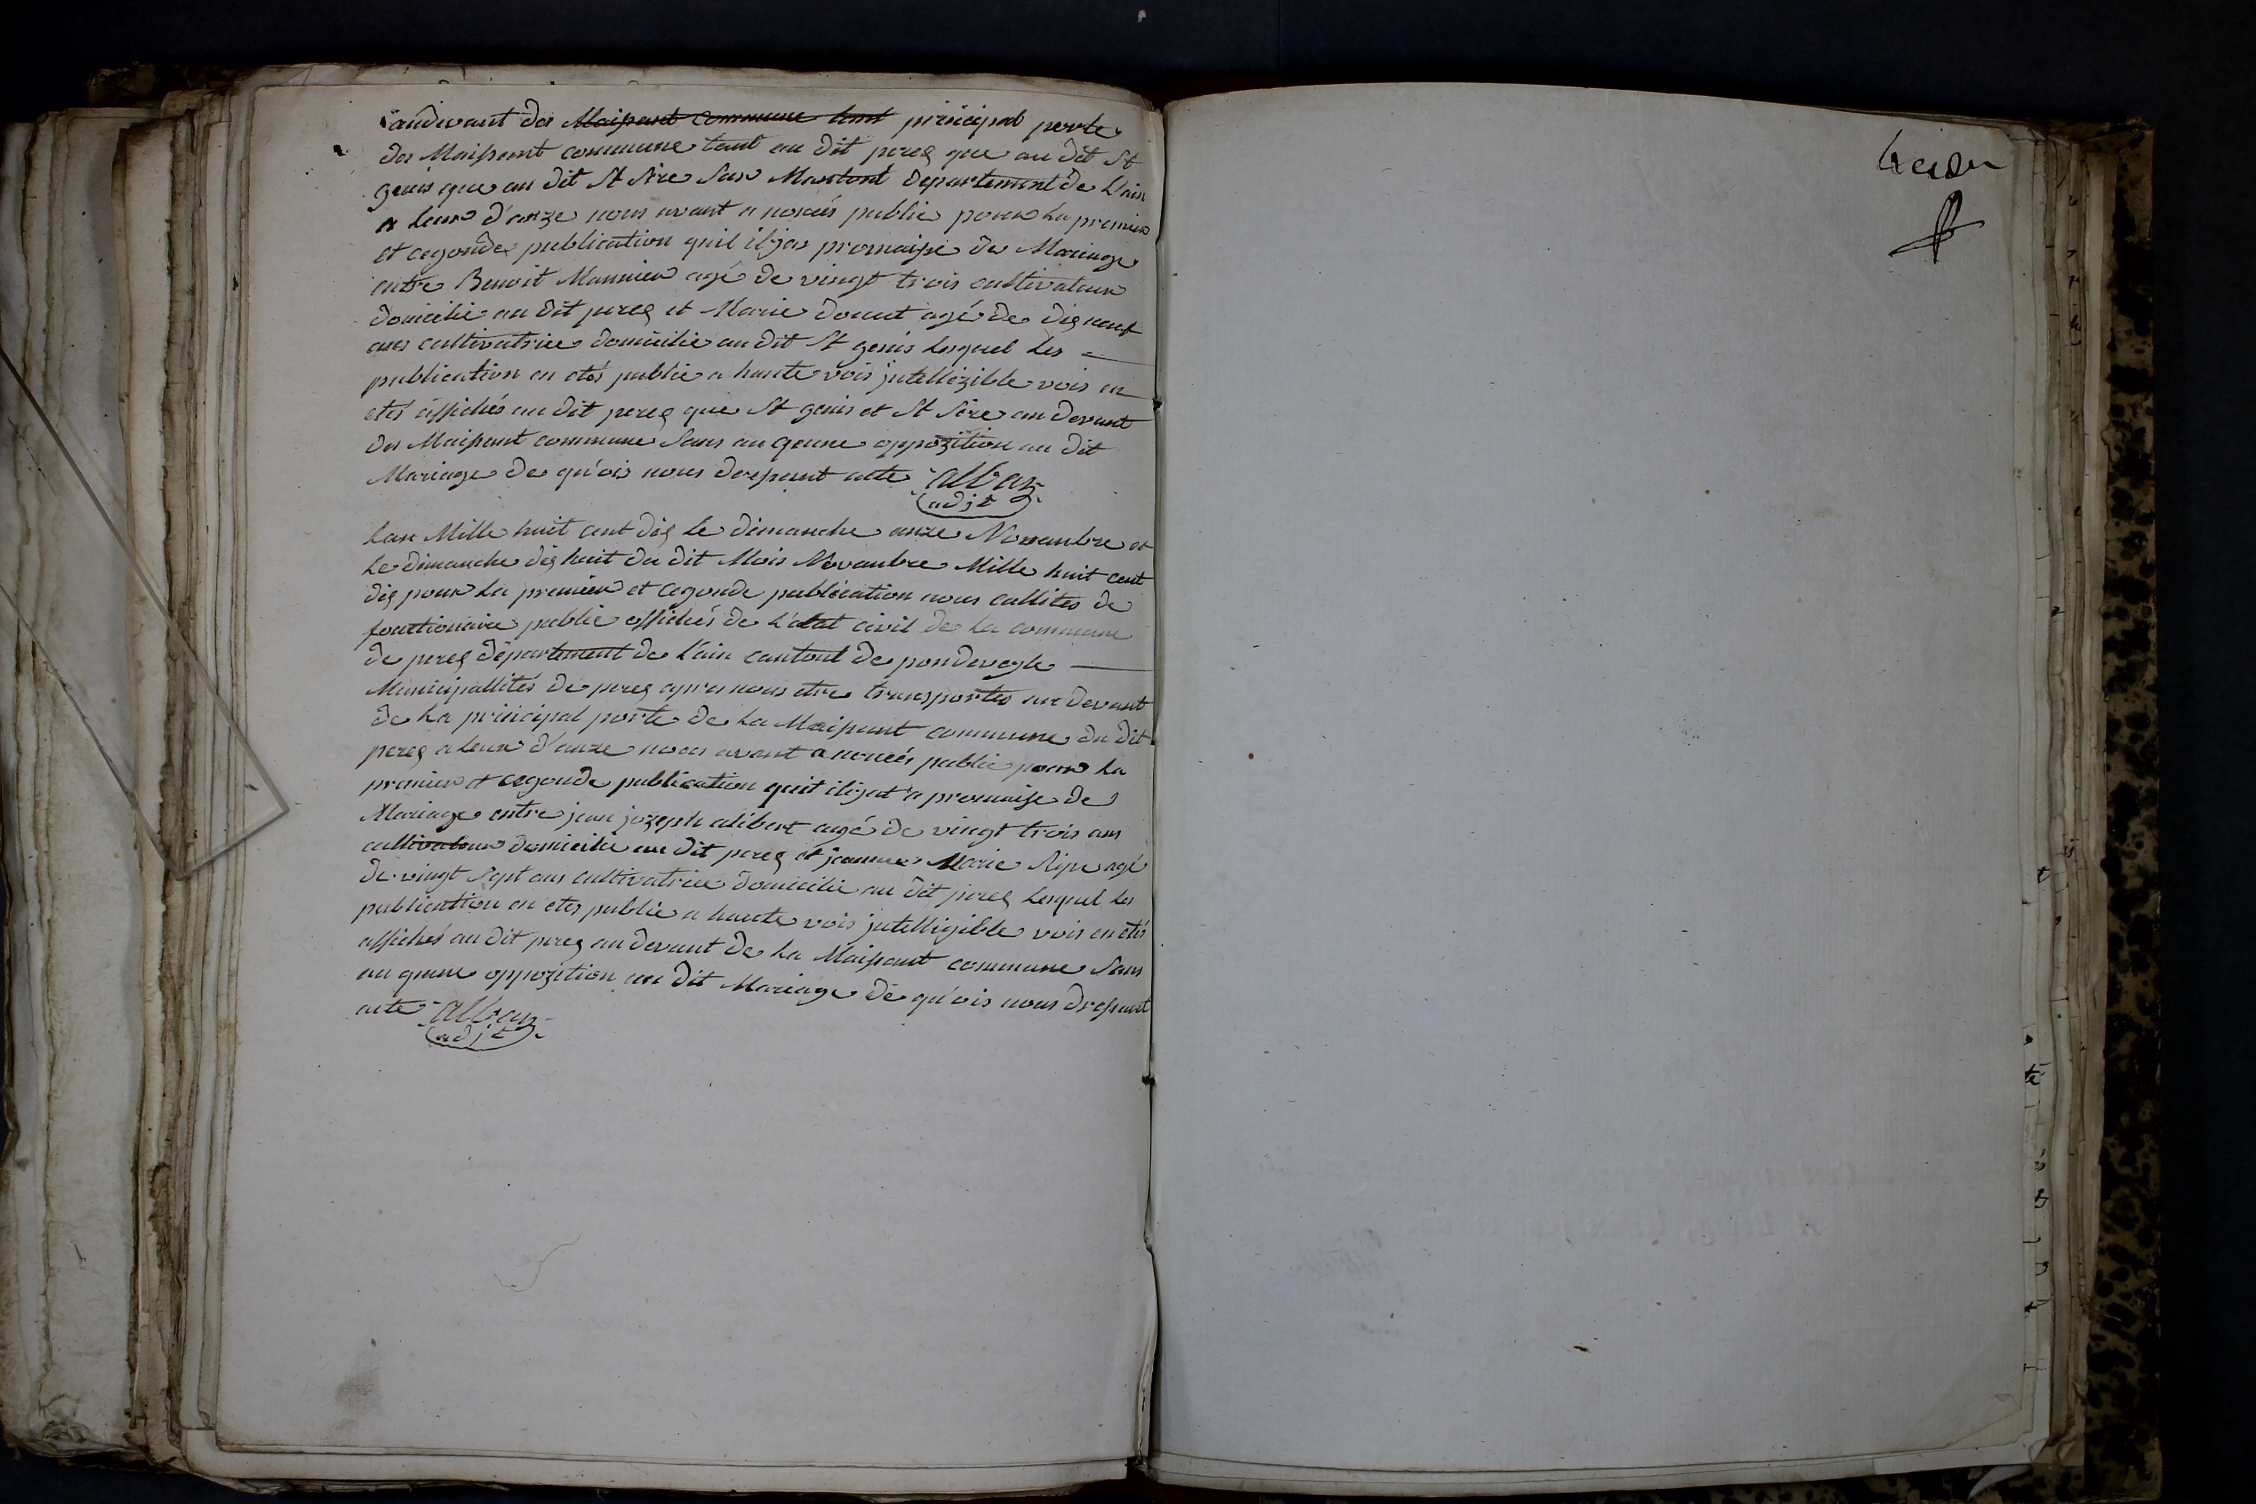 audevant des Maisont commune tant principal porte
des Maisont commune tant au dit perex que au dit St
genis que au dit St Sire Sur Mantont Departement de L'ain
a Leur d'onze nous avant anoncés public pour La premier
et cegonde publication quil iljas promaise de Mariage
entre Benoit Monnier agé de vingt trois cultivateur
domicilie au dit perex et Marie douut agé de dix neuf
ans cultivatrice domicilie au dit St genis Lesquel Les
publication en etés public a haute vois jntellizible vois en
etés affichés au dit perex que St genis et St Sire au devant
des Maisont commune Sans au qeune oppozition au dit
Mariage de qu'ois nous dresont acte alban
adjt
Lan Mille huit cent dix Le dimanche onze Novanbre et
Le dimanche dix huit du dit Mois Novanbre Mille huit cent
dix pour La premier et cegonde publication nous callites de
fonctionaire public offichés de L'etat civil de La commune
de perex departement de L'ain cantont de pondeveyle
Municipallités de perex apres nous etre transportes au devant
de La principal porte de La Maisont commune du dit
perex a Leur d'onze nous avant anoncés public pour La
premier et cegonde publication quit ilijat a promaise de
Mariage entre jean jozeph alibert agé de vingt trois ans
cultivateur domicilie au dit perex et jeanne Marie Ripe agé
de vingt Sept ans cultivatrice domicilie au dit perex Lesquel Les
publication en etes public a haute vois jntelligible vois en etés
affichés au dit perex au devant de La Maisont commune Sans
au qeune oppozition au dit Mariage de qu'ois nous dresont
acte alban
adjt